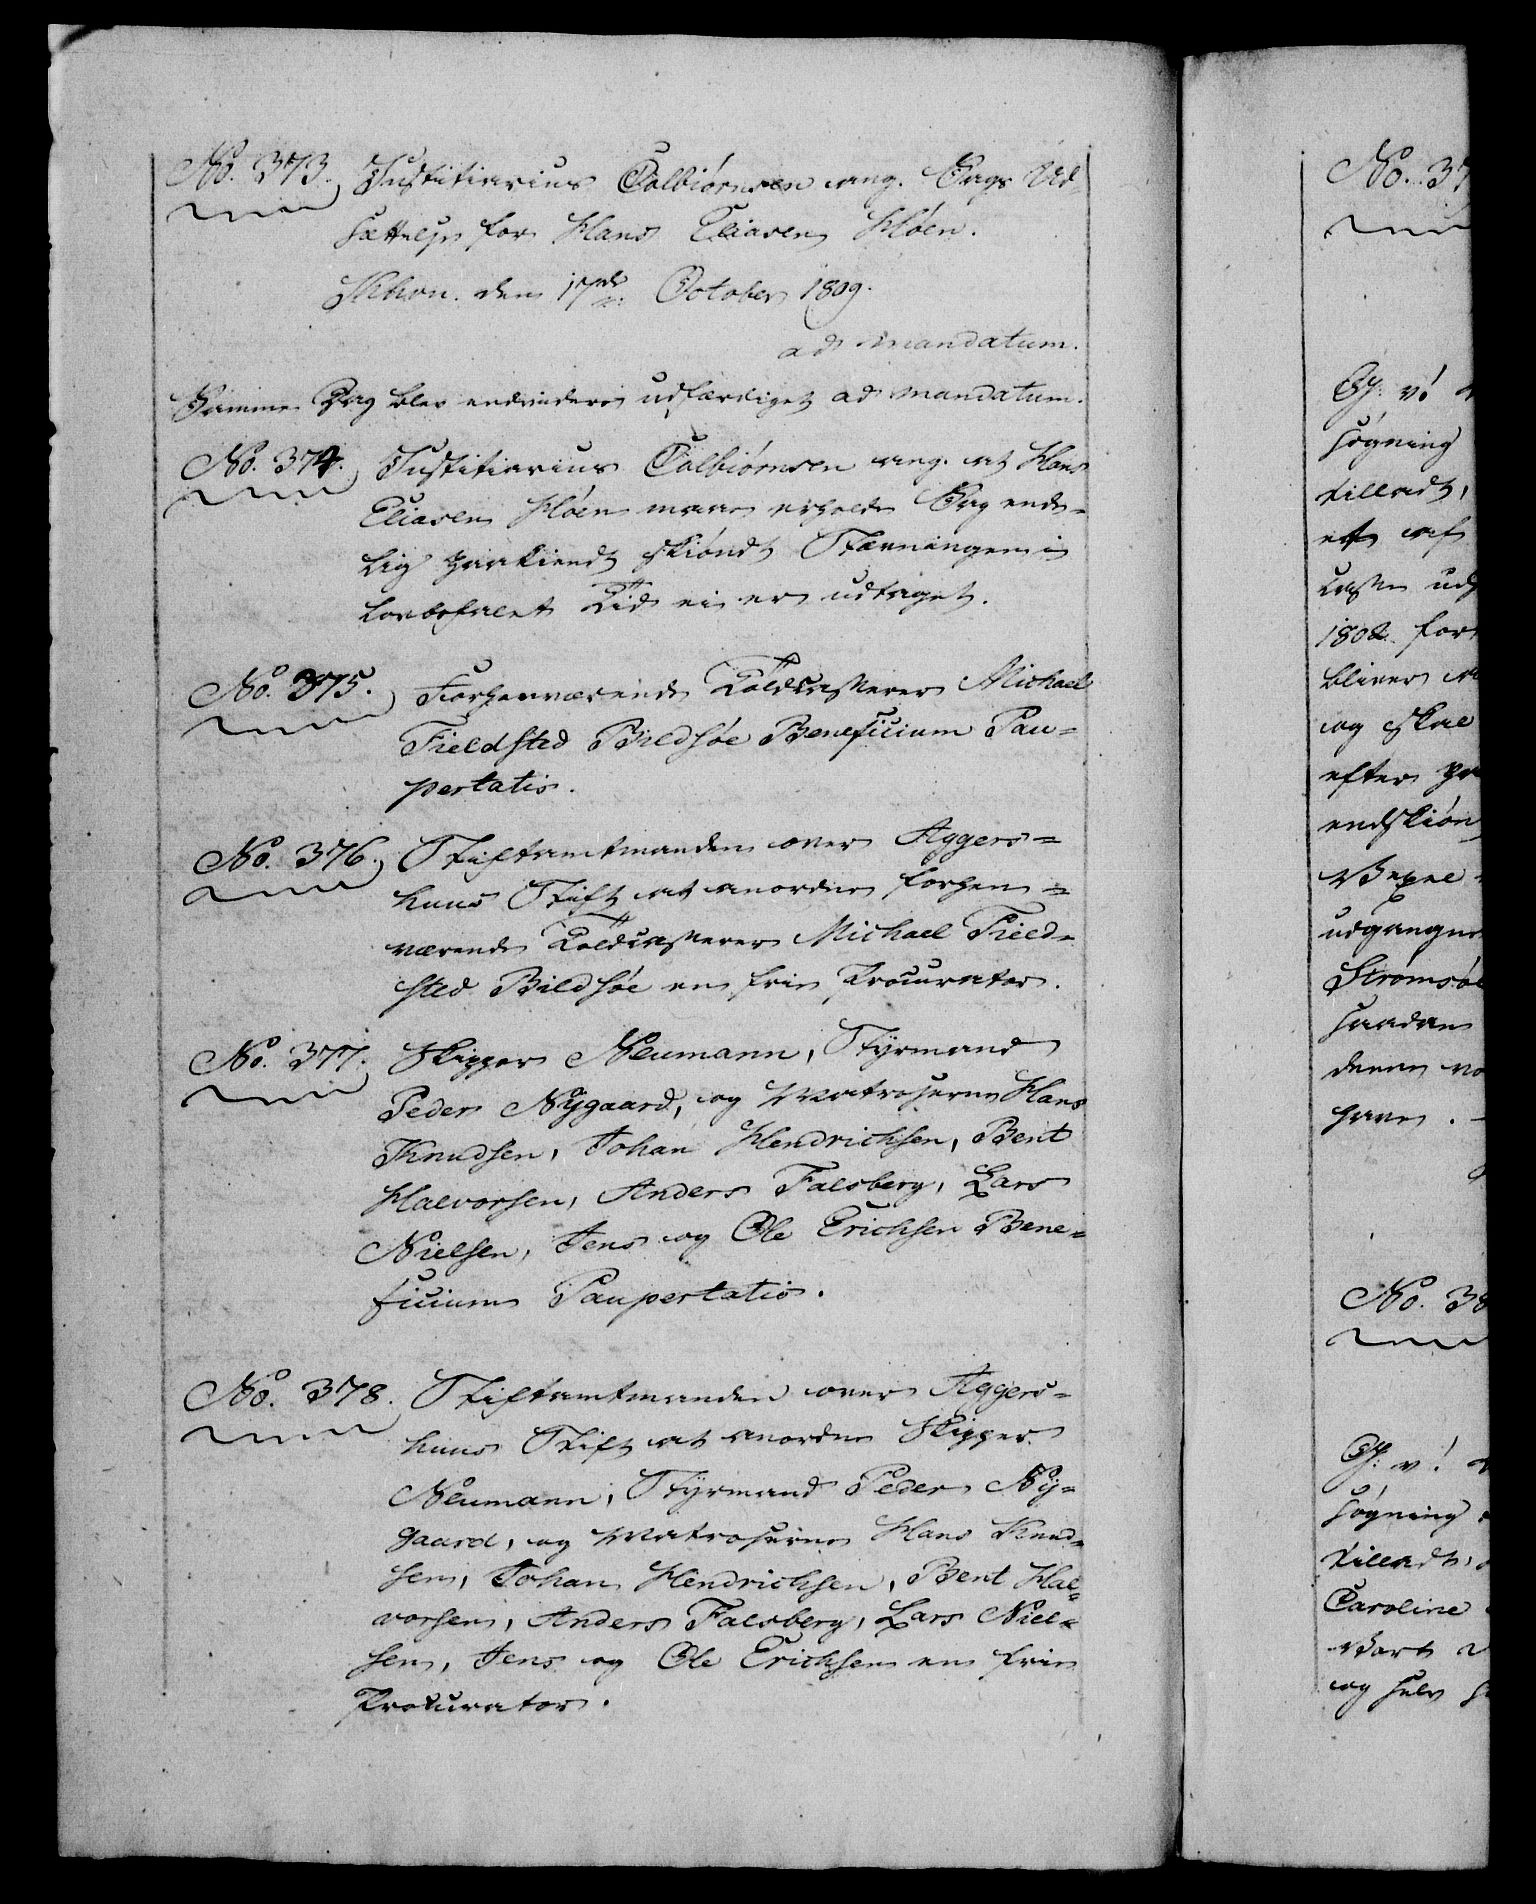 No. 373. Justitiarius Colbiørnsen ang. Sags Ud
sættelse for Hans Eliasen Høen.
Khavn. den 17de October 1809.
ad mandatum.
Samme Dag blev endvidere udfærdiget ad mandatum.
No. 374. Justitiarius Colbiørnsen ang. at Hans
Eliasen Høen maae erholde Sag ende-
lig paakiendt skiøndt Stævningen i
lovbefalet Tid ei er udtaget.
No. 375. Forhenværende Toldkasserer Michael
Fieldsted Bildsøe Beneficium Pau-
pertatis.
No. 376. Stiftamtmanden over Aggers=
huus Stift at anordne forhen=
værende Toldkasserer Michael Field-
sted Bildsøe en frie Procurator.
No. 377. Skipper Neumann, Styrmand
Peder Nygaard, og Matroserne Hans
Knudsen, Johan Hendrichsen, Bent
Halvorsen, Anders Falsberg, Lars
Nielsen, Jens og Ole Erichsen Bene-
ficium Paupertatis.
No. 378. Stiftamtmanden over Aggers=
huus Stift at anordne Skipper
Neumann, Styrmand Peder Ny=
gaard, og Matroserne Hans Knud-
sen, Johan Hendrichsen, Bent Hal-
vorsen, Anders Falsberg, Lars Niel-
sen, Jens og Ole Erichsen en frie
Prokurator.
No. 37
G: v:
søgning
tilladt,
af
1802 for
bliver
og skal
efter
endskiøn
udgangne
Strømsøe
saadan
denne
have.
No. 38
G: v:
søgning
tilladt,
Caroline
Vort
og selv